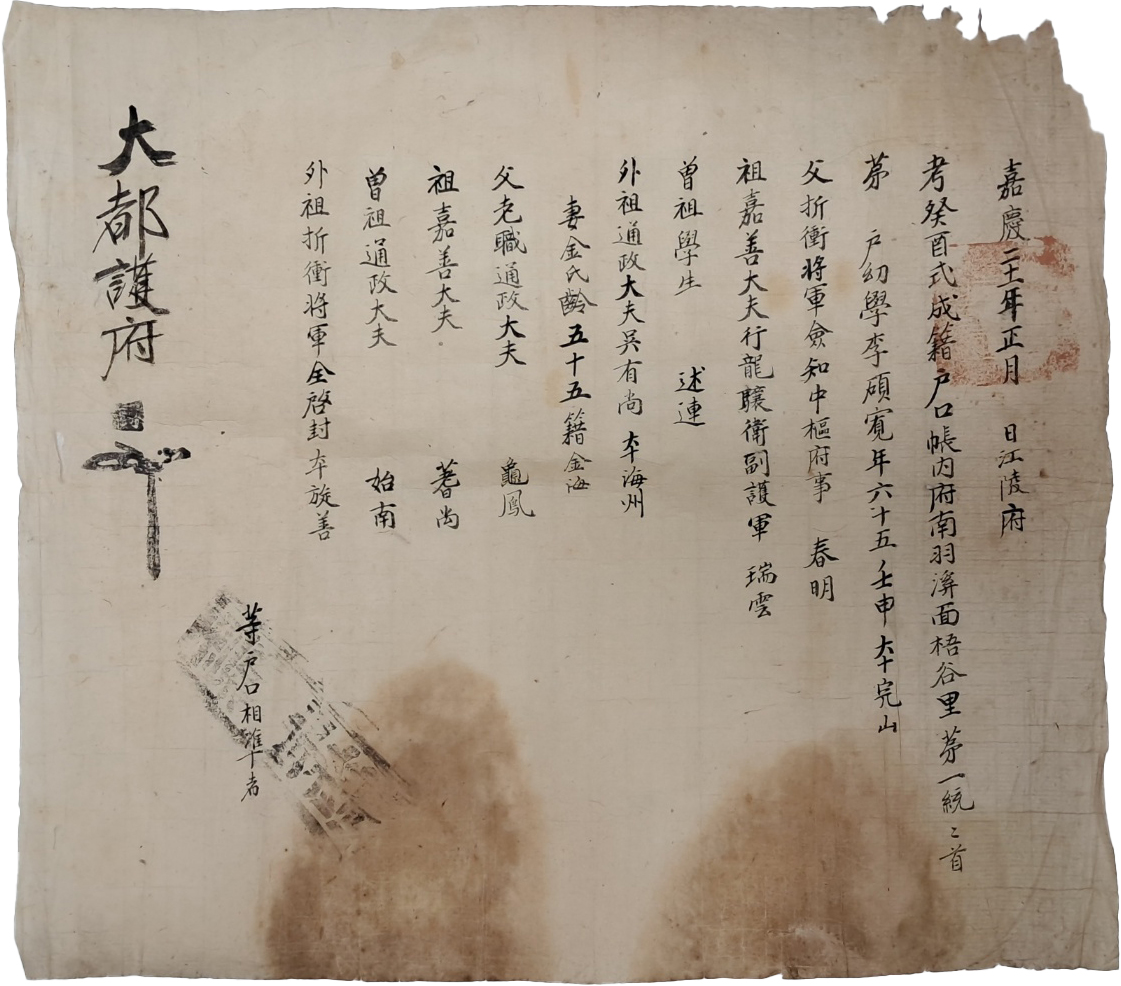 嘉慶二十一年正月 日江陵府
考癸酉式成籍戶口帳內府南羽溪面梧谷里第一統二首
第 戶幼學李碩寬年六十五壬申本完山
父折衝將軍僉知中樞府事 春明
祖嘉善大夫行龍驤衛副護軍 瑞雲
曾祖學生 述連
外祖通政大夫吳有尚本海州
妻金氏齡五十五籍金海
父老職通政大夫 龜鳳
祖嘉善大夫 蓍尚
曾祖通政大夫 始南
外祖折衝將軍全啓封本旌善
等戶口相準者
大都護府